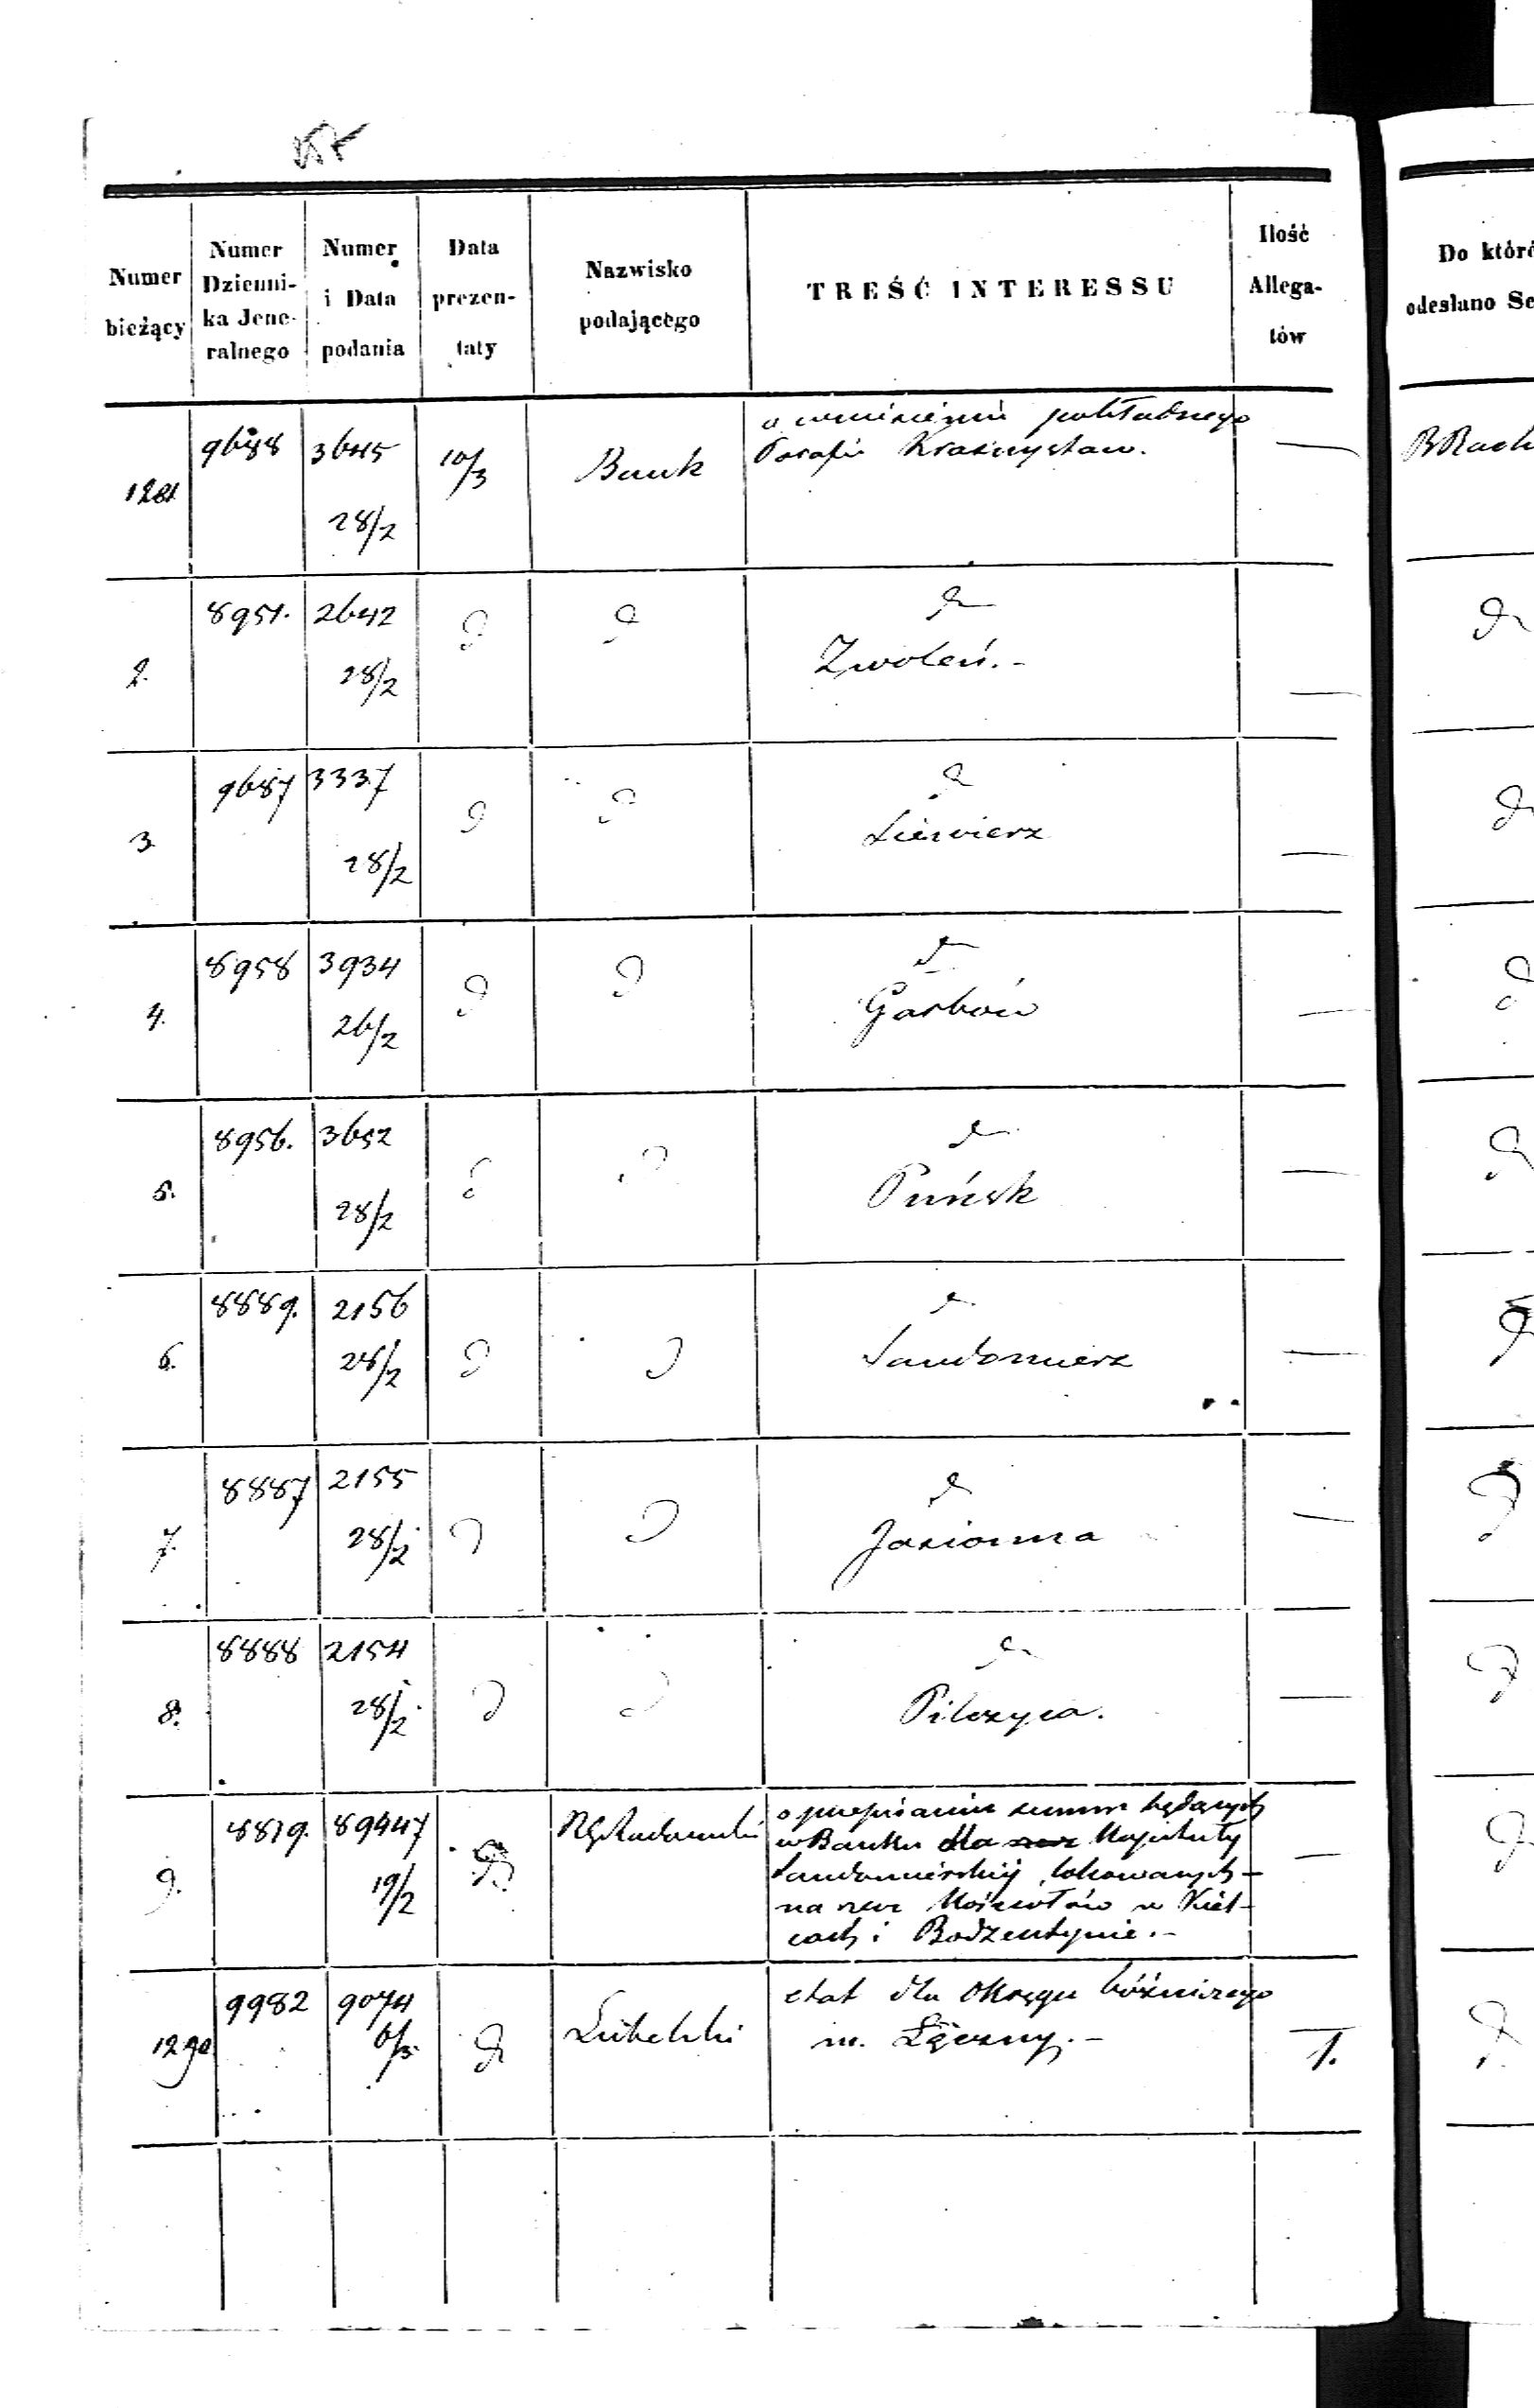 Numer bieżący
Numer Dzienni-ka Jene-ralnego
Numer i Data podania
Data prezen-taty
Nazwisko podającego
TREŚĆ INTERESSU
Ilość Allega-tów
Do któré
odesłano Se
1281 9688 3645 28/2 10/3 Bank
o umieszczeniu pokładnego
Parafii Krasnystaw. —
2. 8951. 2642 28/2 d d d
Zwoleń. - —
3. 9687 3337 28/2 d d d
Siewierz —
4. 8958 3934 26/2 d d d
Garbów —
5. 8956. 3652 28/2 d d d
Puńsk —
6. 8889. 2156 28/2 d d d
Sandomierz —
7. 8887 2155 28/2 d d d
Jasionna —
8. 8888 2154 28/2 d d d
Pilczyca. —
9. 8819. 89447 19/2 d RG Radomski
o przepisaniu summ będących
w Banku dla Kapituły
Sandomierskiej, lokowanych
na rzecz Kościołów w Kiel-
cach i Bodzentynie. - —
1290 9982 9074 6/3. d Lubelski
etat dla Okręgu bóźniczego
m. Łęczny. - 1.